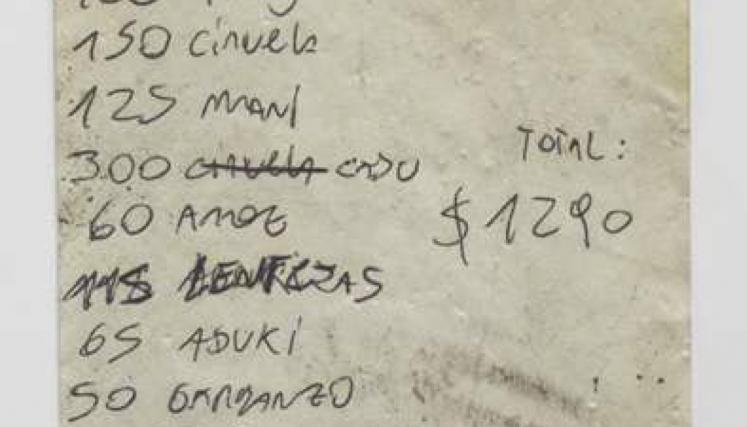 150 ciruela
125 MANI
300 ciruela CAJU
TOTAL:
60 ARROZ
$1290
115 LENTEJAS
65 ADUKI
50 GARBANZO